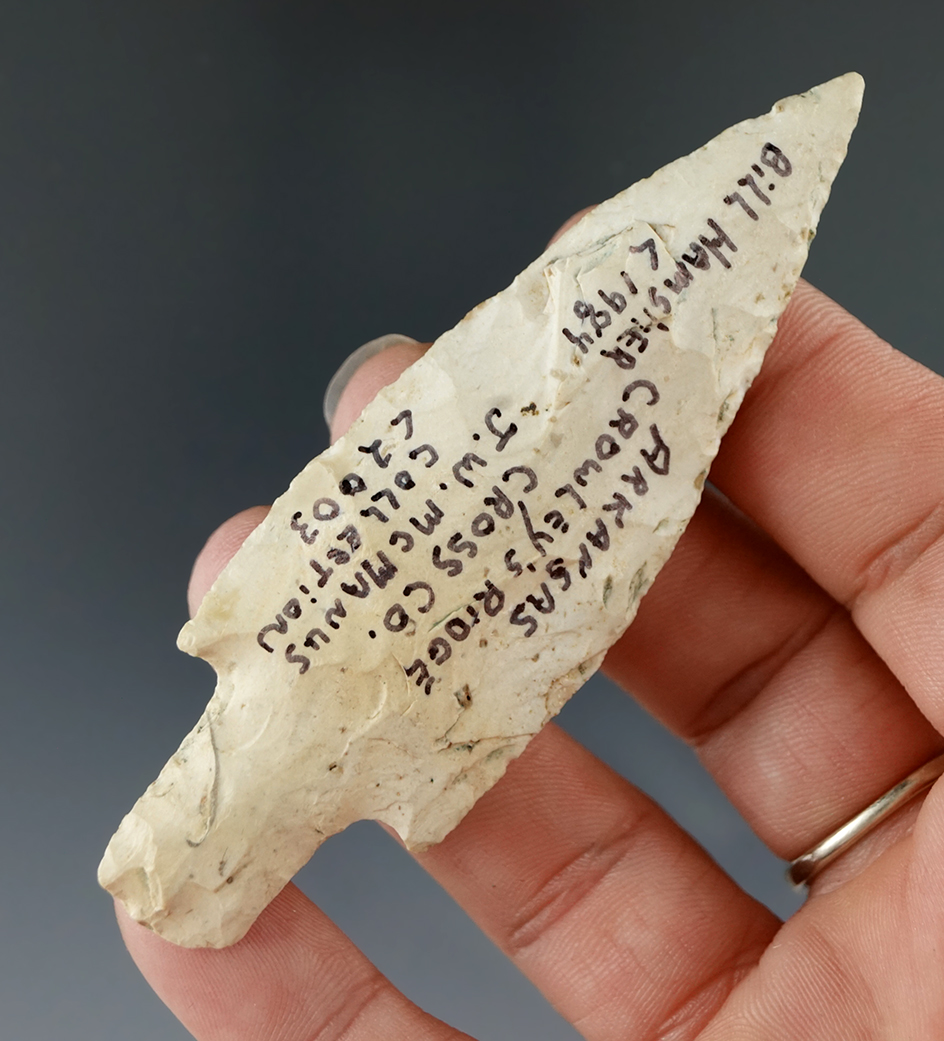 Bill HAmsHER
L 1984
ARKANSAS
CROWLEY'S RIDGE
CROSS CO.
J.W. McMANUS
COLLECTiON
L 2003